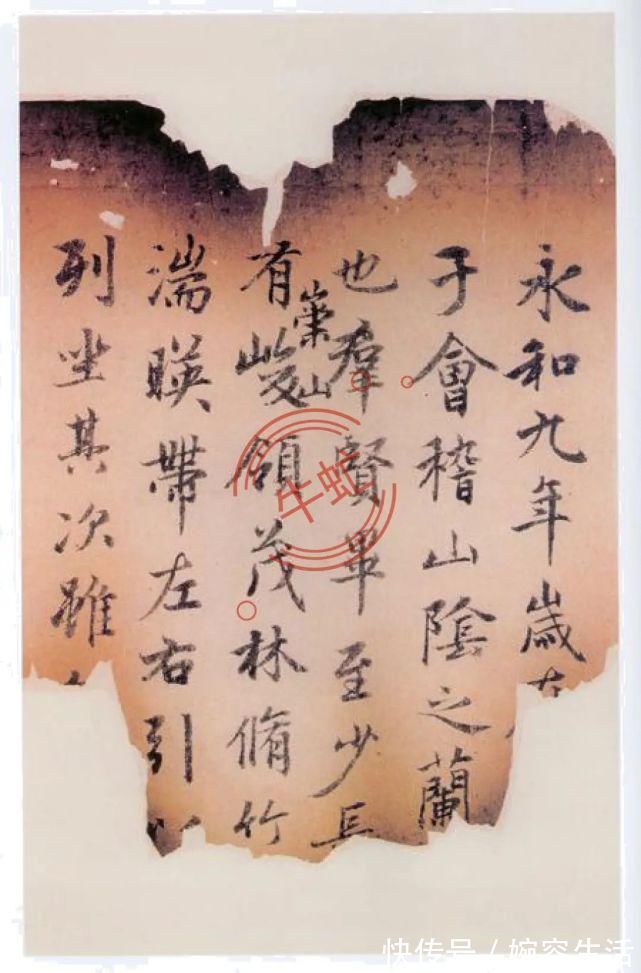 永和九年歲在
于會稽山陰之蘭
也羣賢畢至少長
有崇山峻領茂林脩竹
湍暎帶左右引以
列坐其次雖
牛蚊
快传号 / 婉容生活